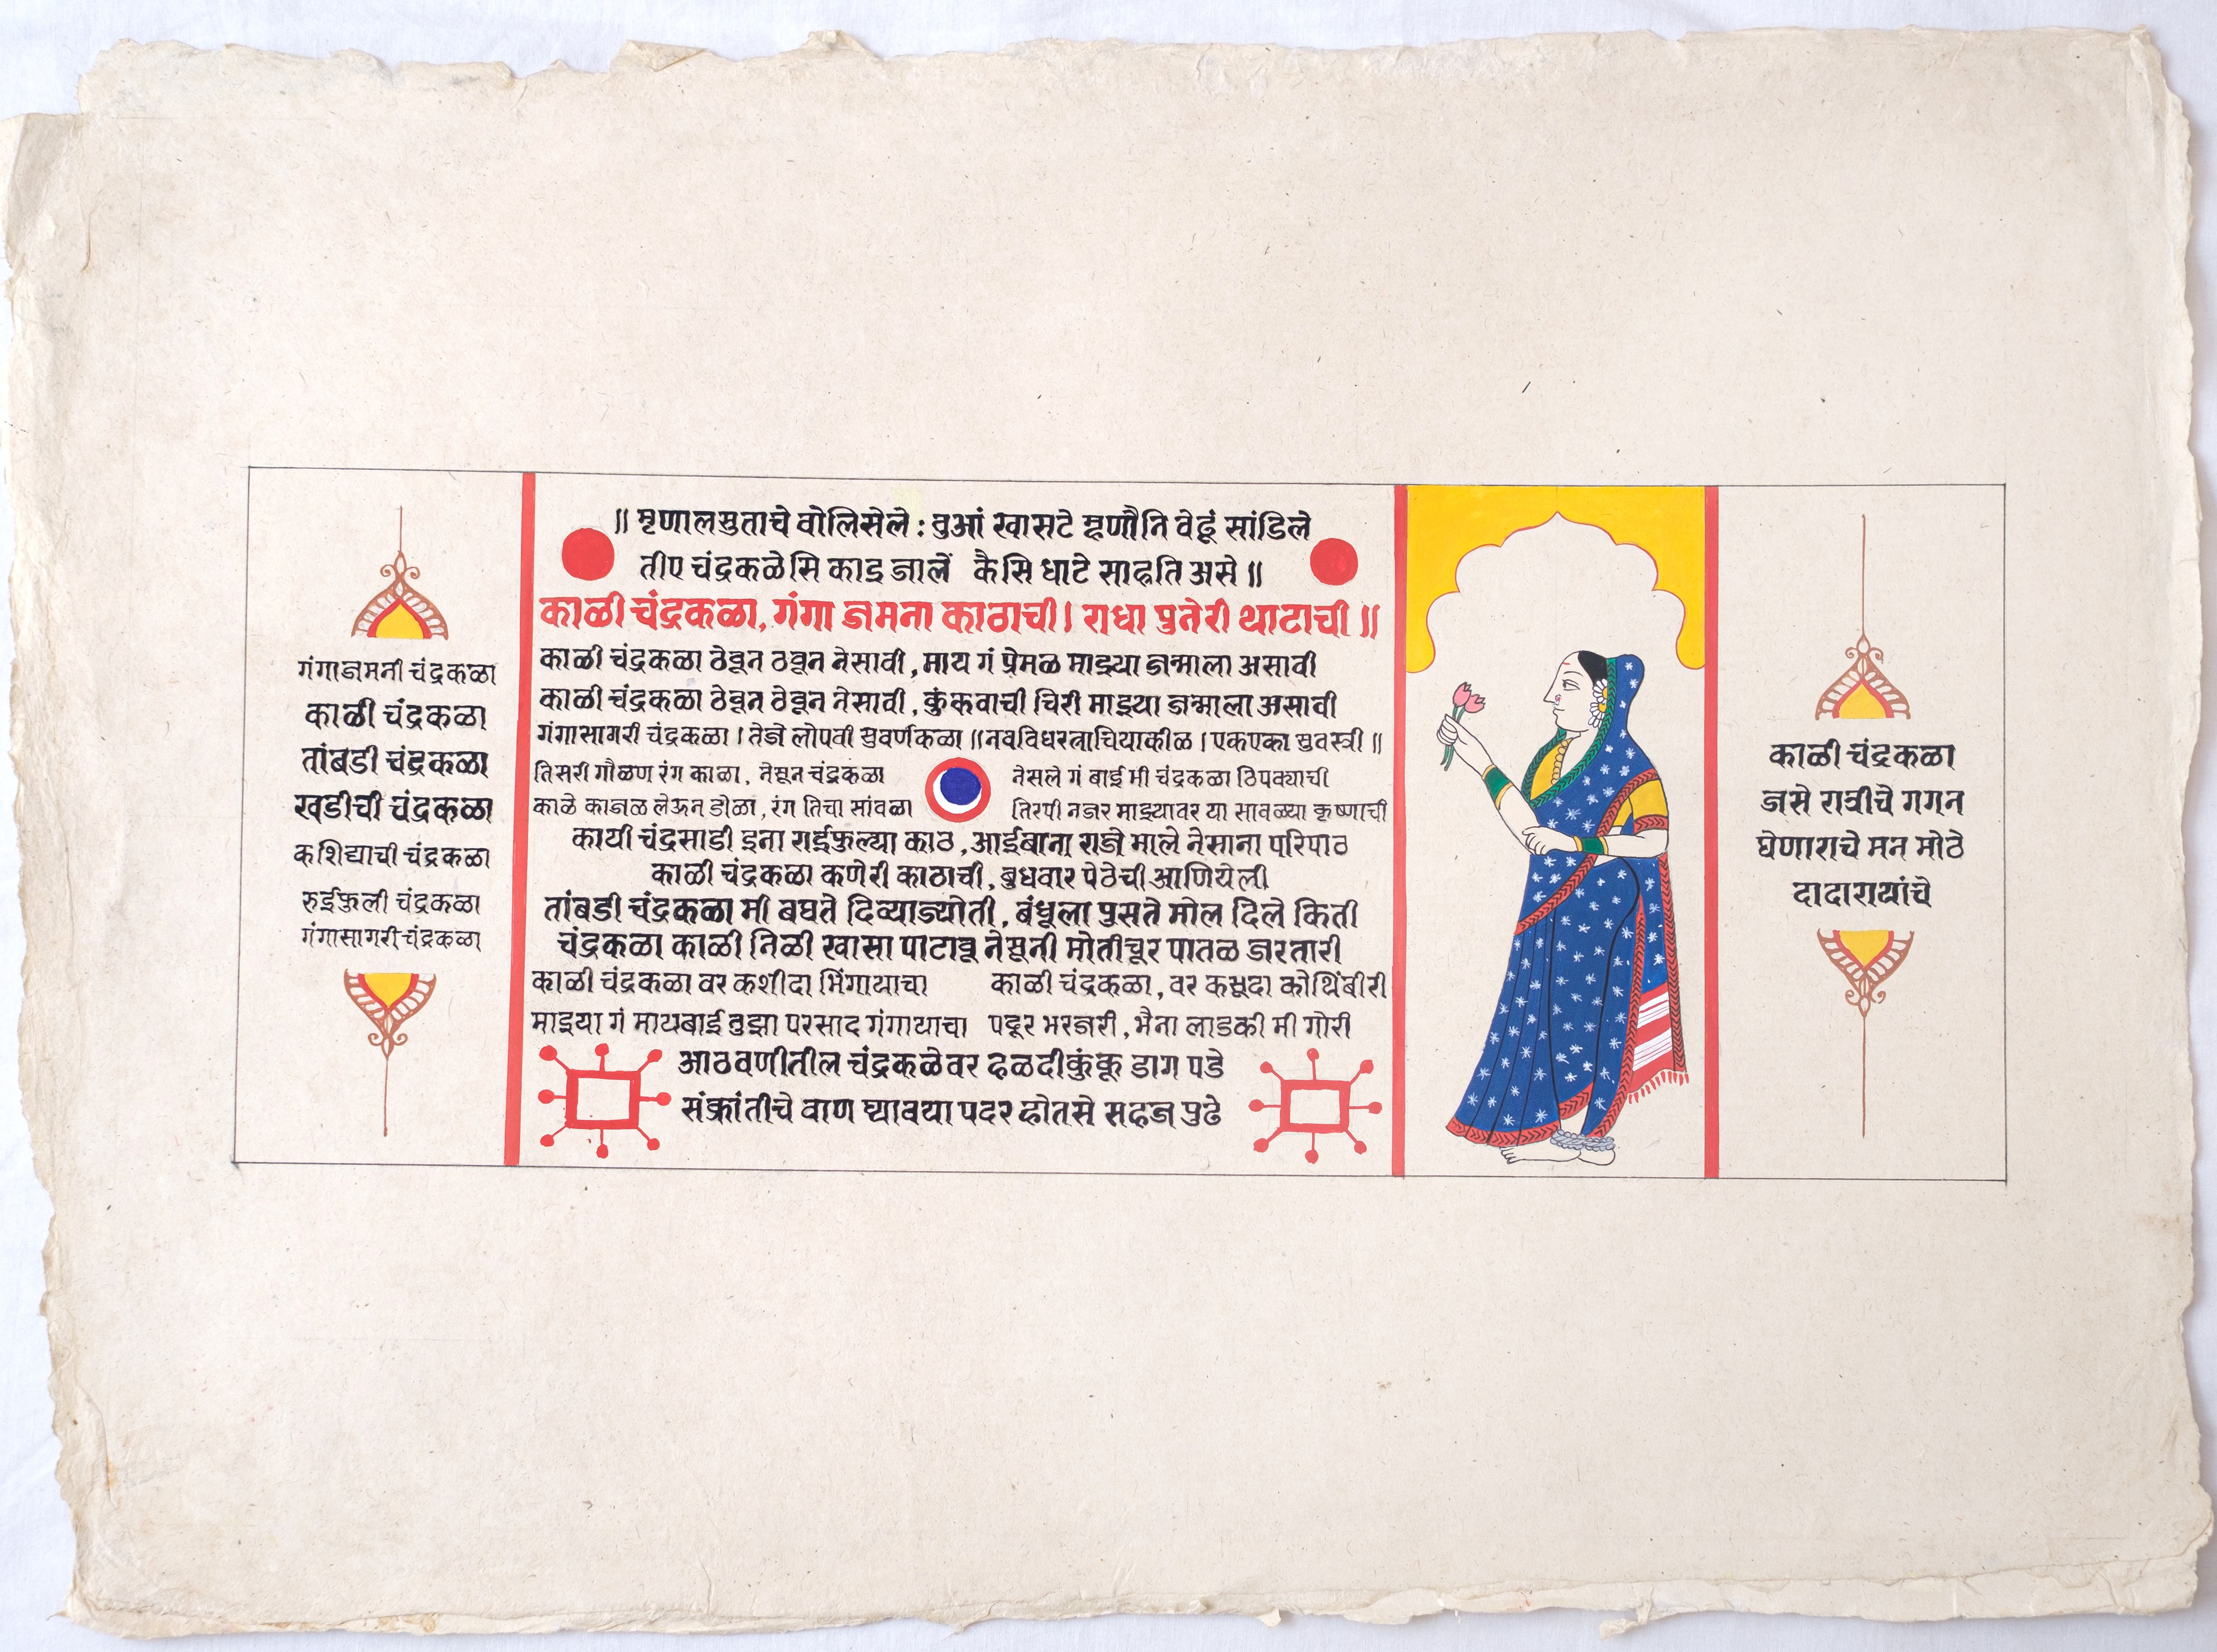 गंगाजमनी चंद्रकळा
काळी चंद्रकळा
तांबडी चंद्रकळा
खडीची चंद्रकळा
कशिद्याची चंद्रकळा
रुईफुली चंद्रकळा
गंगासागरी चंद्रकळा
॥ मृणालसुताचे वोलिसेले : वुआं खासटे म्हणौनि वेढूं सांडिले
तीए चंद्रकळेसि काइ जालें कैसि धाटे साहति असे ॥
काळी चंद्रकळा, गंगा जमना काठाची। राधा पुतेरी थाटाची ॥
काळी चंद्रकळा ठेवून ठवून नेसावी, माय गं प्रेमळ माझ्या जन्माला असावी
काळी चंद्रकळा ठेवून ठेवून नेसावी, कुंकवाची चिरी माझ्या जन्माला असावी
गंगासागरी चंद्रकळा। तेजे लोपवी सुवर्णकळा॥ नवविधरत्नाचियाकीळ। एकएका सुवस्त्री॥
तिसरी गौळण रंग काळा, नेसून चंद्रकळा नेसले गं बाई मी चंद्रकळा ठिपक्याची
काळे काजळ लेऊन डोळा, रंग तिचा सांवळा तिरपी नजर माझ्यावर या सावळ्या कृष्णाची
कायी चंद्रसाडी इना राईफुल्या काठ, आईबाना राजे माले नेसाना परिपाठ
काळी चंद्रकळा कणेरी काठाची, बुधवार पेठेची आणियेली
तांबडी चंद्रकळा मी बघते दिव्याज्योती, बंधूला पुसते मोल दिले किती
चंद्रकळा काळी निळी खासा पाटावू नेसुनी मोतीचूर पातळ जरतारी
काळी चंद्रकळा वर कशीदा भिंगायाचा काळी चंद्रकळा, वर कसुदा कोथिंबीरी
माझ्या गं मायबाई तुझा परसाद गंगायाचा पदूर भरजरी, भैना लाडकी मी गोरी
आठवणीतील चंद्रकळेवर हळदीकुंकू डाग पडे
संक्रांतीचे वाण घ्यावया पदर होतसे सहज पुढे
काळी चंद्रकळा
जसे रात्रीचे गगन
घेणाराचे मन मोठे
दादारायांचे